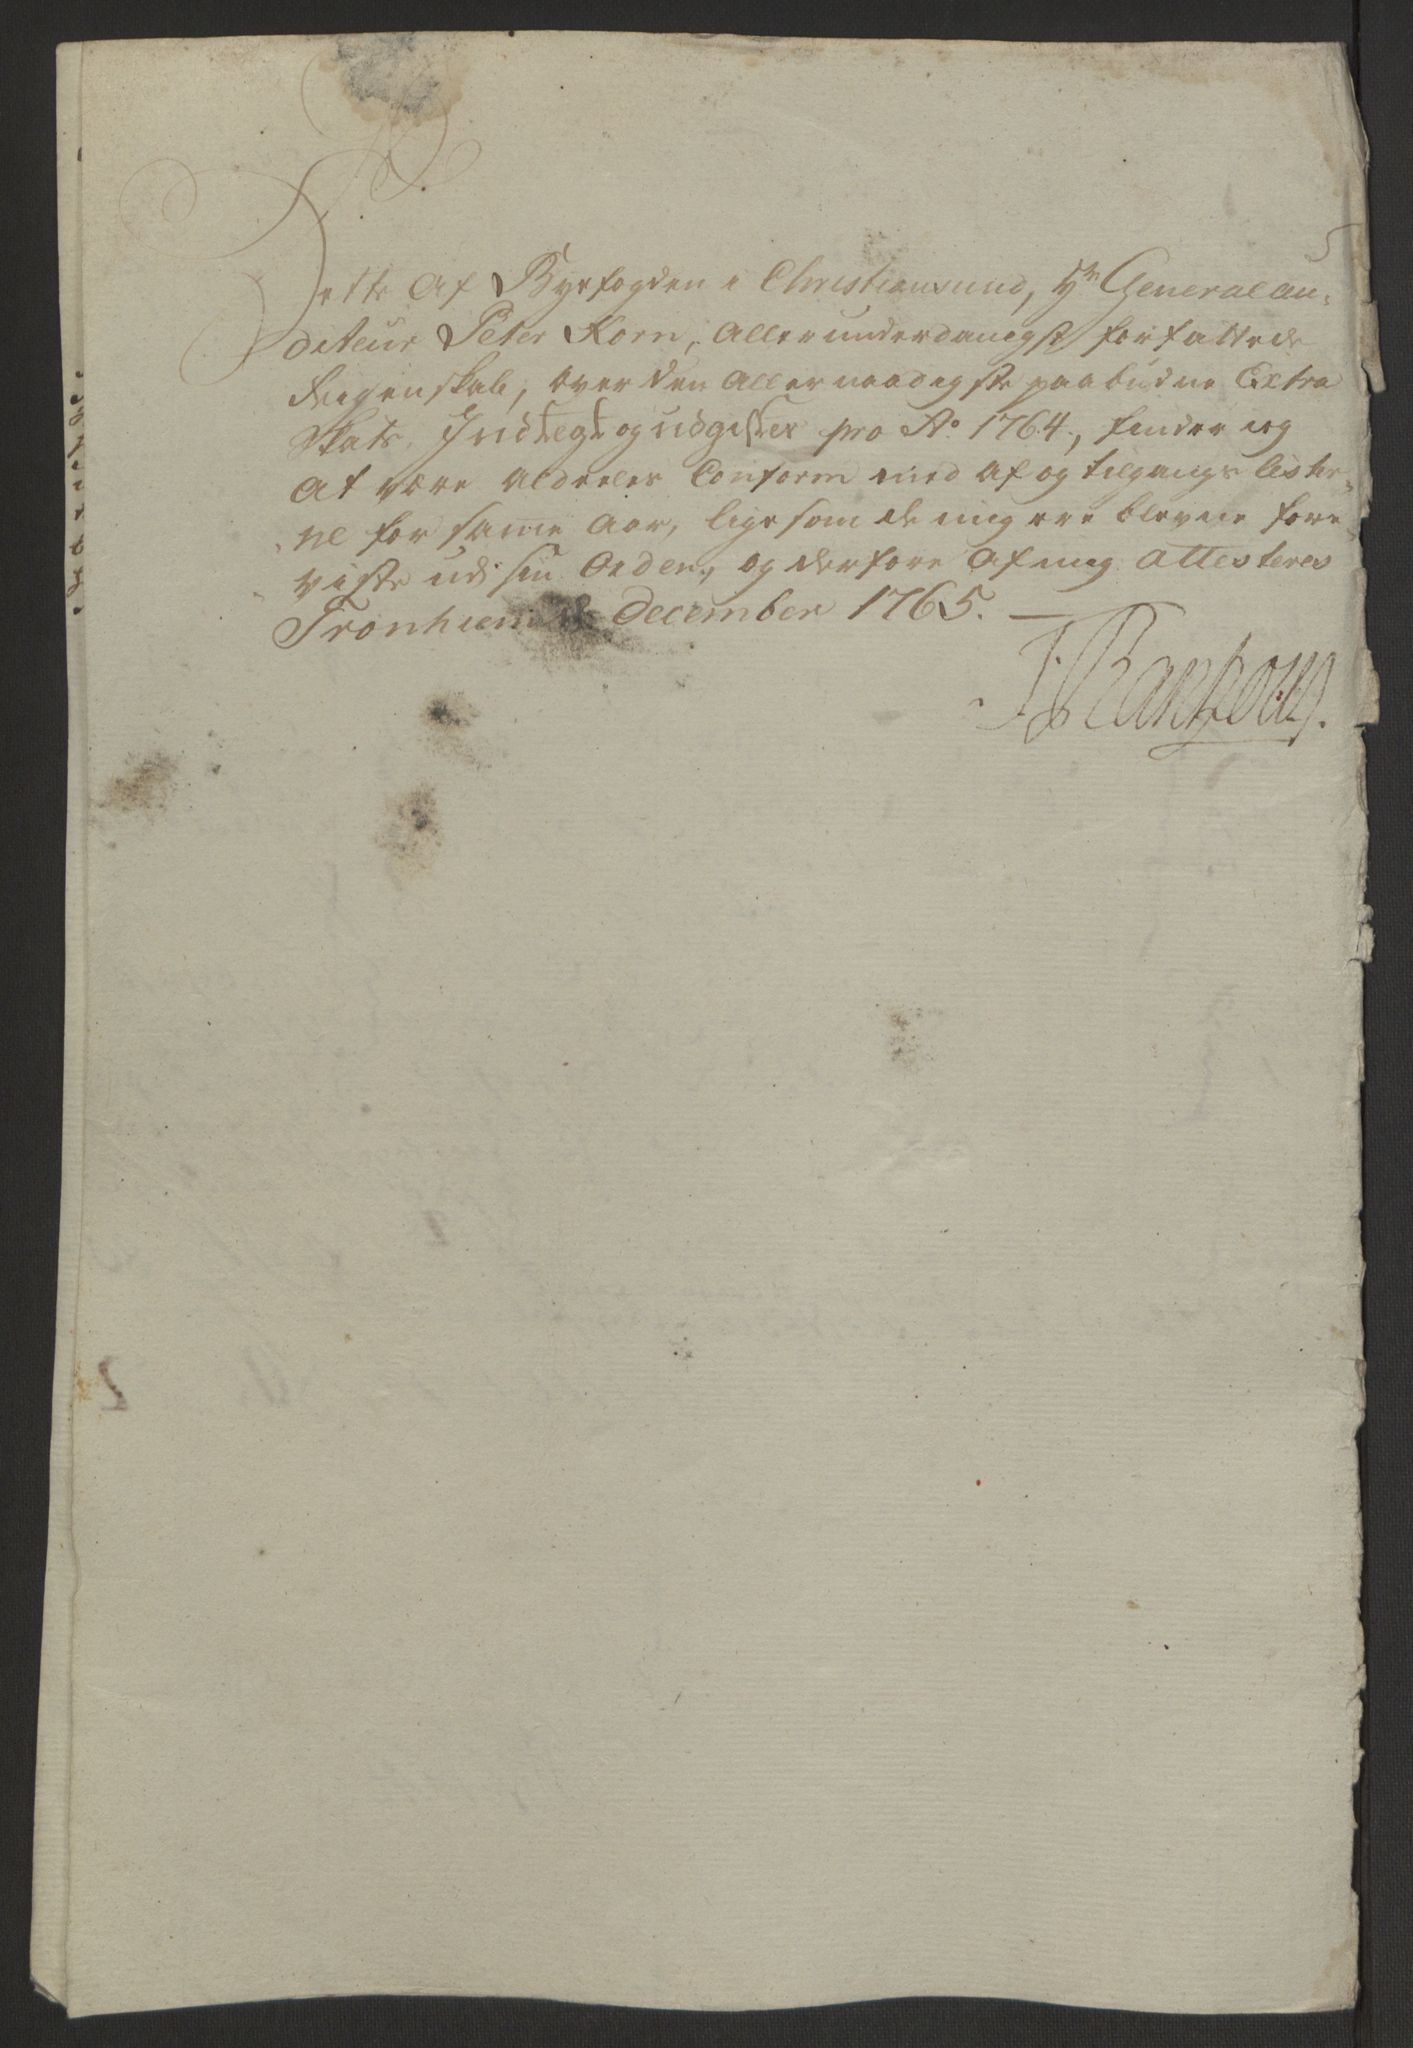 Dette Af Byefogden i Christiansund, Hr General au-
diteur Peter Korn, Allerunderdanigst forfattede
Reigenskab, over den Allernaadigste paabudne Extra
Skats Indtegt og udgifter pro Ao 1764, finder ieg
At være Aldeeles Conform med Af og tilgangs Lister-
ne for samme Aar, lige som de mig ere blevne fore-
viste udi sin Orden, og derfore Af mig Attesteres
Tronhiem December 1765. —